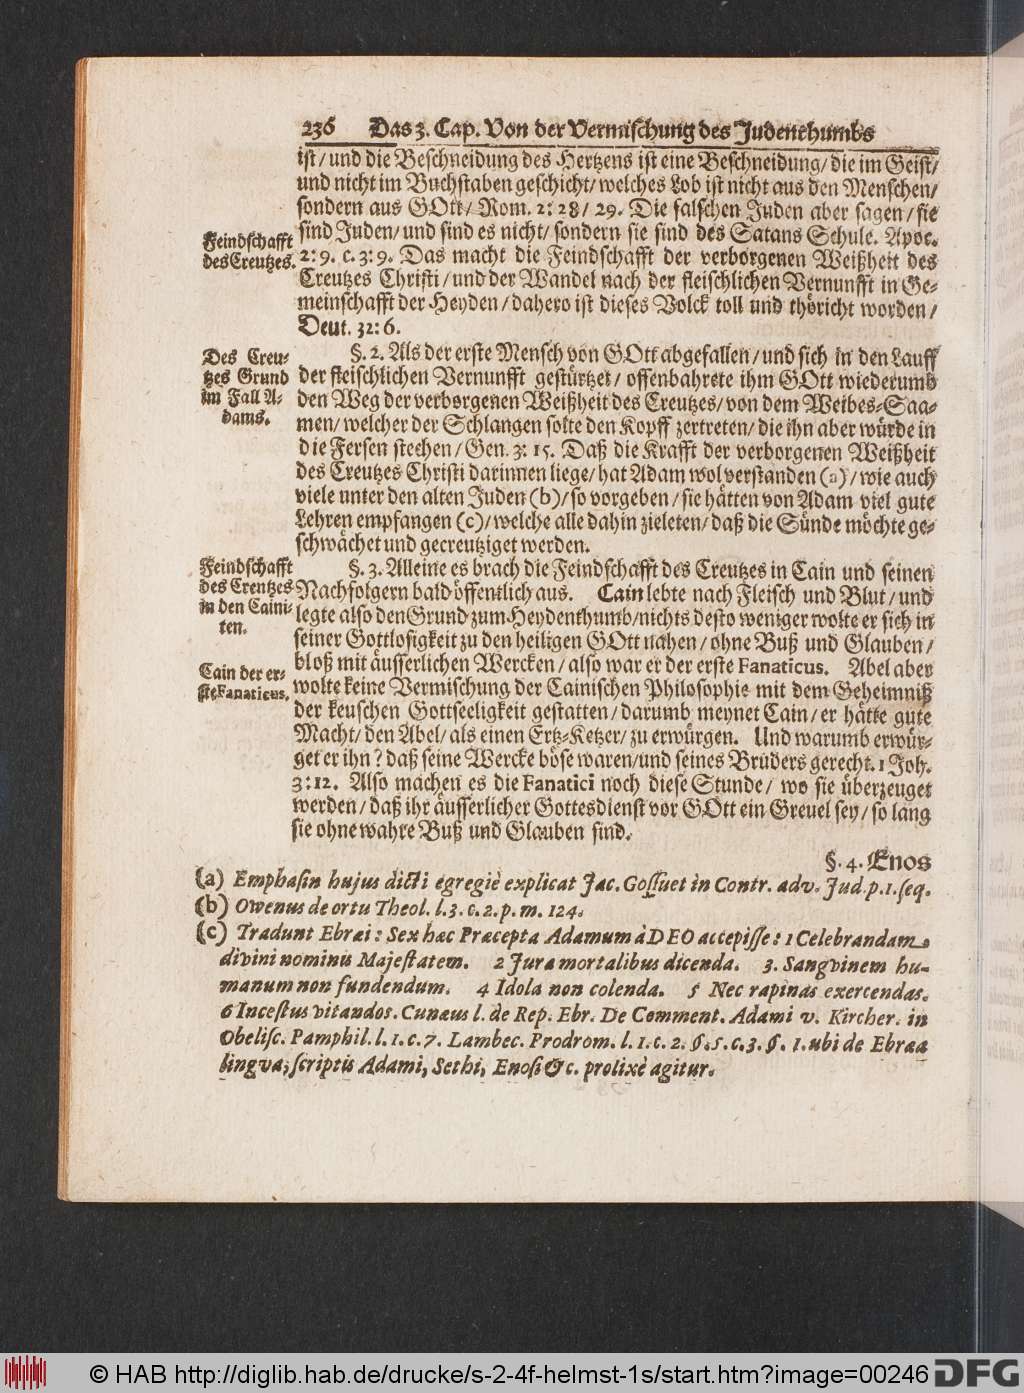 236 Das 3. Cap. Von der Vermischung des Judenthumbs
ist/ und die Beschneidung des Hertzens ist eine Beschneidung/ die im Geist/
und nicht im Buchstaben geschicht/ welches Lob ist nicht aus den Menschen/
sondern aus GOtt/ Rom. 2: 28/ 29. Die falschen Juden aber sagen/ sie
sind Juden/ und sind es nicht/ sondern sie sind des Satans Schule. Apoc.
2: 9. c. 3: 9. Das macht die Feindschafft der verborgenen Weißheit des
Creutzes Christi/ und der Wandel nach der fleischlichen Vernunfft in Ge-
meinschafft der Heyden/ dahero ist dieses Volck toll und thöricht worden/
Deut. 32: 6.
Feindschafft
des Creutzes.
§. 2. Als der erste Mensch von GOtt abgefallen/ und sich in den Lauff
der fleischlichen Vernunfft gestürtzet/ offenbahrete ihm GOtt wiederumb
den Weg der verborgenen Weißheit des Creutzes/ von dem Weibes-Saa-
men/ welcher der Schlangen solte den Kopff zertreten/ die ihn aber würde in
die Fersen stechen/ Gen. 3: 15. Daß die Krafft der verborgenen Weißheit
des Creutzes Christi darinnen liege/ hat Adam wol verstanden (a)/ wie auch
viele unter den alten Juden (b)/ so vorgeben/ sie hätten von Adam viel gute
Lehren empfangen (c)/ welche alle dahin zieleten/ daß die Sünde möchte ge-
schwächet und gecreutziget werden.
Des Creu-
tzes Grund
im Fall A-
dams.
§. 3. Alleine es brach die Feindschafft des Creutzes in Cain und seinen
Nachfolgern bald öffentlich aus. Cain lebte nach Fleisch und Blut/ und
legte also den Grund zum Heydenthumb/ nichts desto weniger wolte er sich in
seiner Gottlosigkeit zu den heiligen GOtt nahen/ ohne Buß und Glauben/
bloß mit äusserlichen Wercken/ also war er der erste Fanaticus. Abel aber
wolte keine Vermischung der Cainischen Philosophie mit dem Geheimniß
der keuschen Gottseeligkeit gestatten/ darumb meynet Cain/ er hätte gute
Macht/ den Abel/ als einen Ertz-Ketzer/ zu erwürgen. Und warumb erwür-
get er ihn? daß seine Wercke böse waren/ und seines Bruders gerecht. 1 Joh.
3: 12. Also machen es die Fanatici noch diese Stunde/ wo sie überzeuget
werden/ daß ihr äusserlicher Gottesdienst vor GOtt ein Greuel sey/ so lang
sie ohne wahre Buß und Glauben sind.
Feindschafft
des Creutzes
in den Caini-
ten.
Cain der er-
ste Fanaticus.
§. 4. Enos
(a) Emphasin hujus dicti egregiè explicat Jac. Gossuet in Contr. adv. Jud. p. 1. seq.
(b) Owenus de ortu Theol. l. 3. c. 2. p. m. 124.
(c) Tradunt Ebræi: Sex hæc Præcepta Adamum à DEO accepisse: 1 Celebrandam
divini nominis Majestatem. 2 Jura mortalibus dicenda. 3. Sangvinem hu-
manum non fundendum. 4 Idola non colenda. 5 Nec rapinas exercendas.
6 Incestus vitandos. Cunæus l. de Rep. Ebr. De Comment. Adami v. Kircher. in
Obelisc. Pamphil. l. 1. c. 7. Lambec. Prodrom. l. 1. c. 2. §. 5. c. 3. §. 1. ubi de Ebræa
lingva, scriptis Adami, Sethi, Enosi &c. prolixè agitur.
© HAB http://diglib.hab.de/drucke/s-2-4f-helmst-1s/start.htm?image=00246
DFG